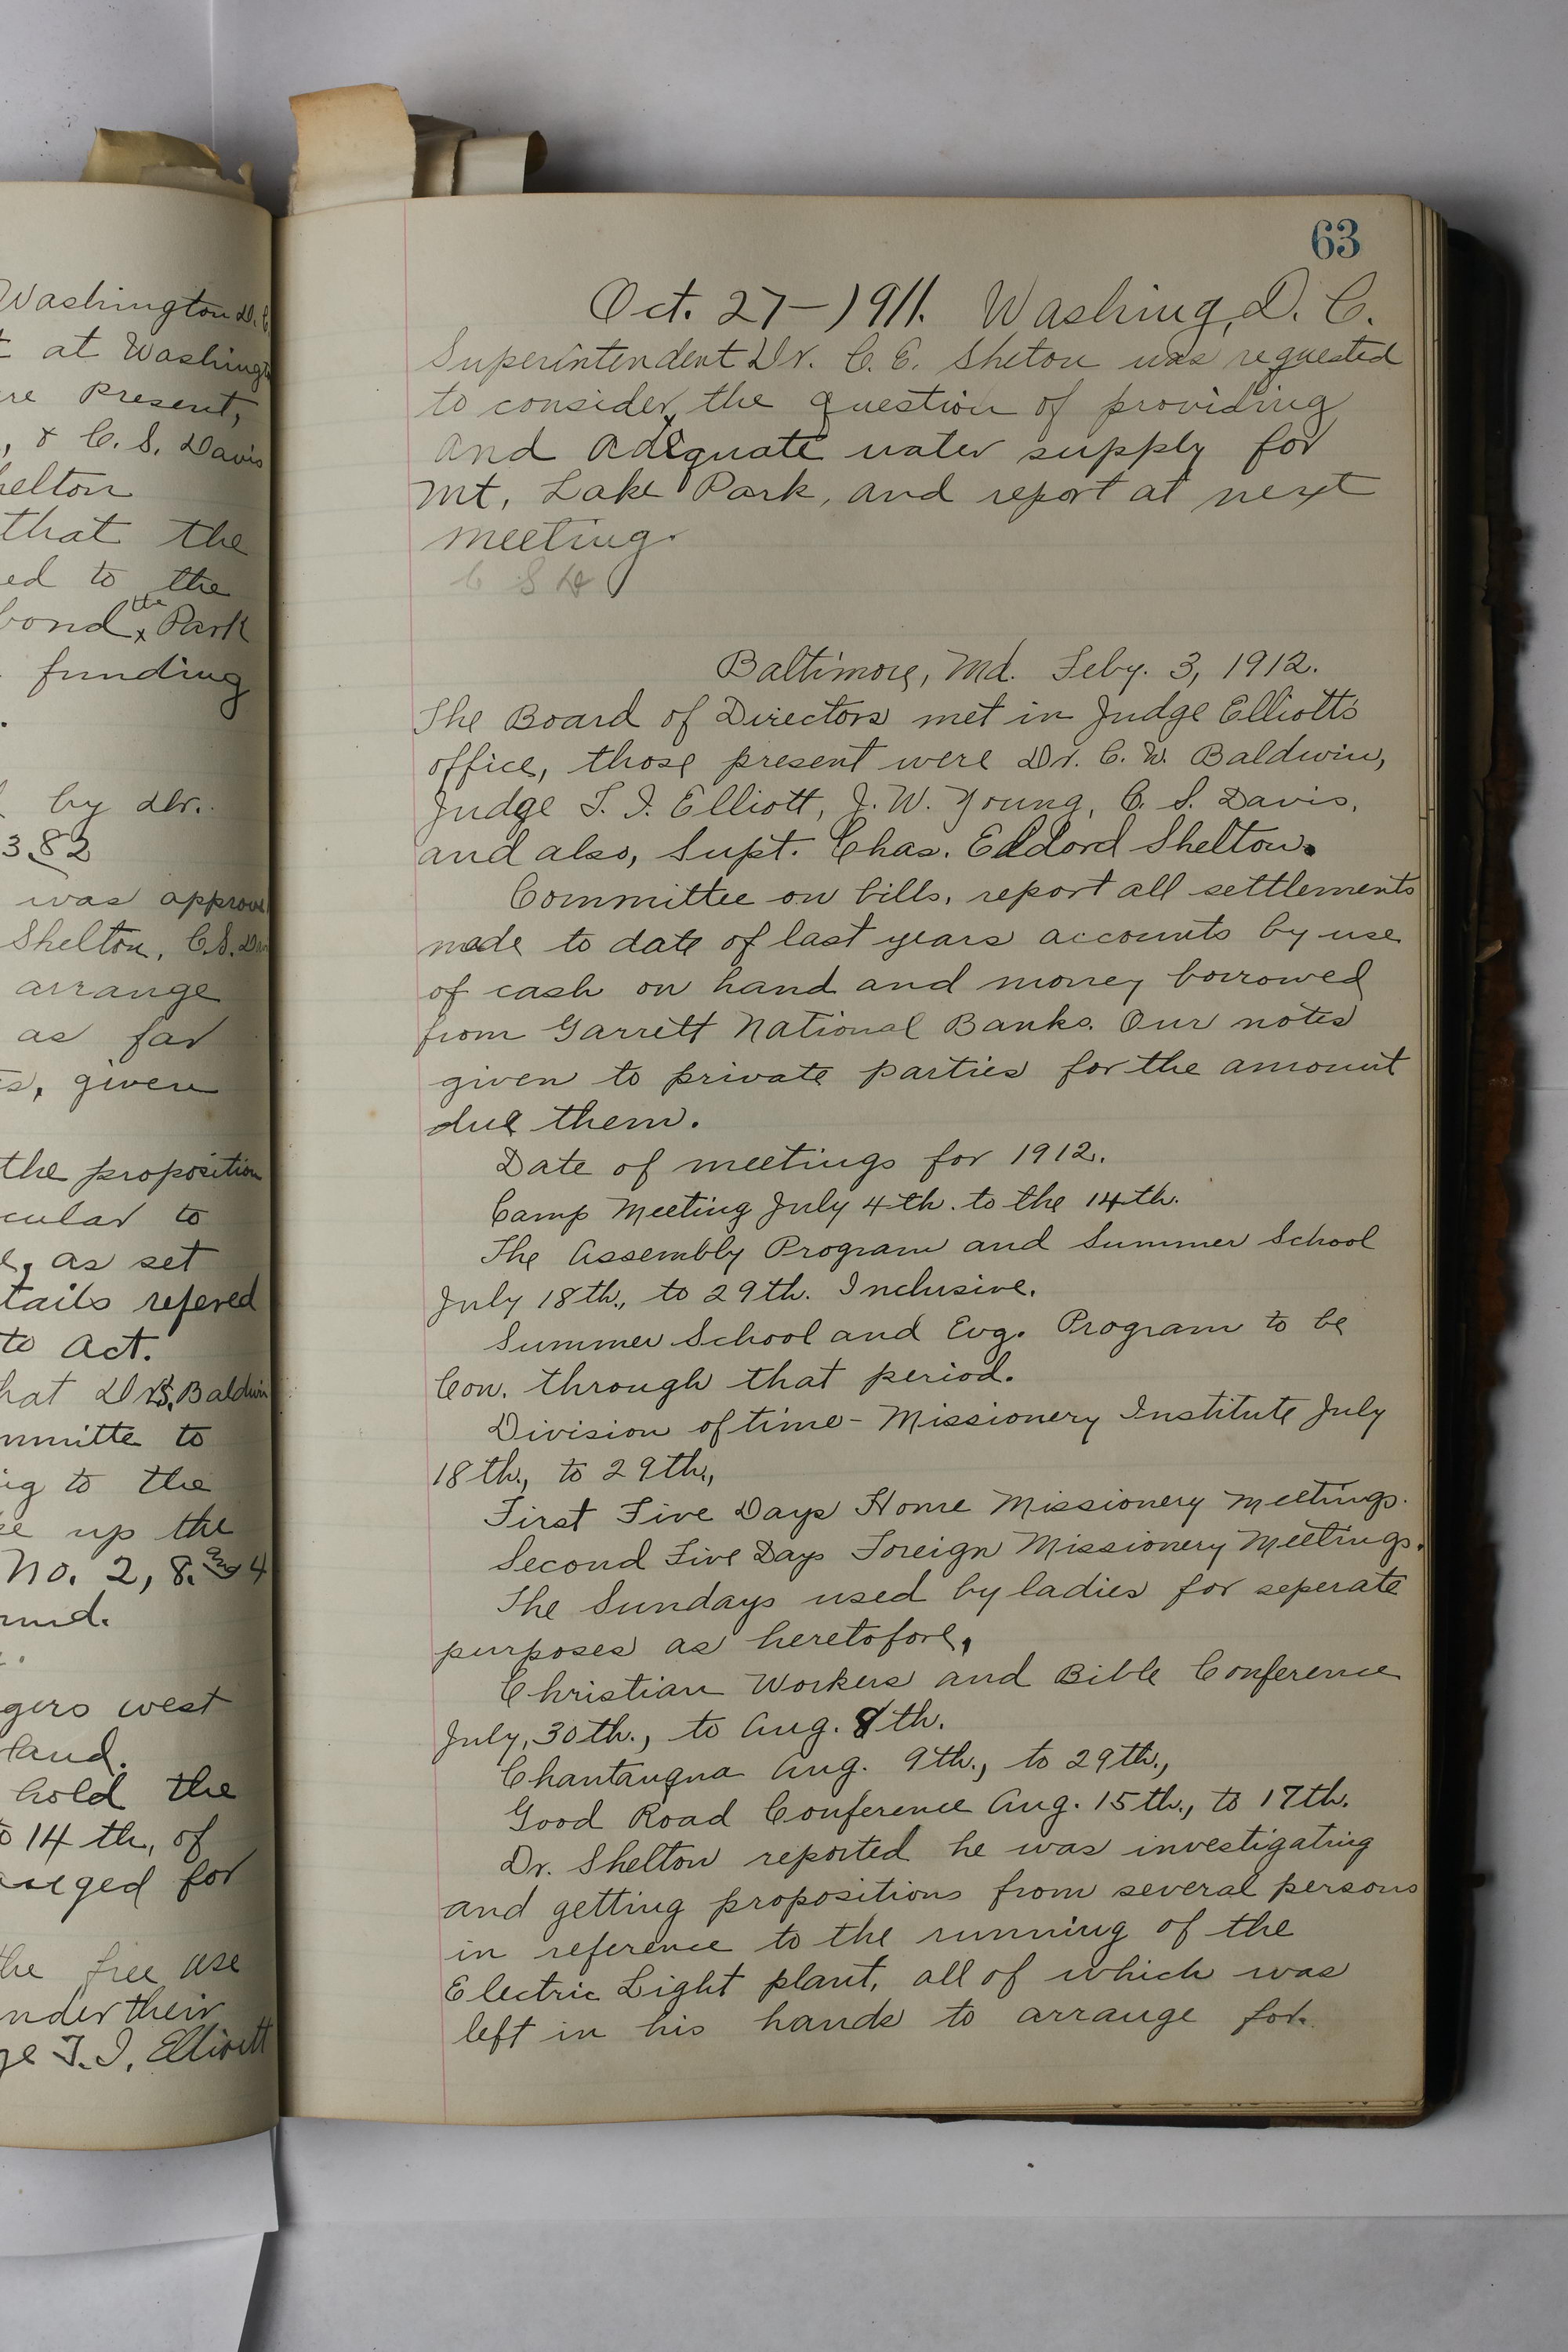 Washington D.C
at Washingt
re Present,
, & C. S. Davis
helton
that the
ed to the
the
bond x Park
funding
by Dr.
382
was approve
Shelton, C.S. Da
arrange
as far
s, given
the proposition
cular to
e, as set
tails refered
to act.
hat Drs. Baldwin
mmitte to
ig to the
ke up the
No. 2, 8. and 4
rund.
gers west
land.
hold the
to 14 th, of
anged for
the free use
nder their
ge T. I. Elliott
63
Oct. 27-1911. Washing, D. C.
Superintendent Dr. C. E. Sheton was requested
to consider, the question of providing
and adequate water supply for
Mt, Lake Park, and report at next
meeting.
C S D
Baltimore, Md. Feby. 3, 1912.
The Board of Directors met in Judge Elliotts
office, those present were Dr. C. W. Baldwin,
Judge T. I. Elliott, J. W. Young, C. S. Davis,
and also, Supt. Chas. Eldord Shelton.
Committee on bills, report all settlements
made to date of last years accounts by use
of cash on hand and money borrowed
from Garrett National Banks. Our notes
given to private parties for the amount
due them.
Date of meetings for 1912.
Camp Meeting July 4th. to the 14th.
The Assembly Program and Summer School
July 18th., to 29th. Inclusive.
Summer School and Evg. Program to be
Con. through that period.
Division of time - Missionery Institute July
18th., to 29th.,
First Five Days Home Missionery Meetings.
Second Five Days Foreign Missionery Meetings.
The Sundays used by ladies for seperate
purposes as heretofore,
Christian Workers and Bible Conference
July, 30th., to Aug. 8th.
Chantauqua Aug. 9th., to 29th.,
Good Road Conference Aug. 15th., to 17th.
Dr. Shelton reported he was investigating
and getting propositions from several persons
in reference to the running of the
Electric Light plant, all of which was
left in his hands to arrange for.